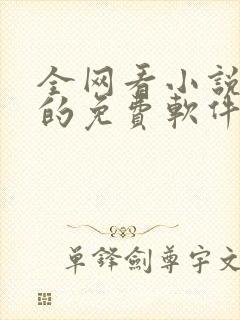 全网看小說
的免費軟件
單鋒劍尊宇文